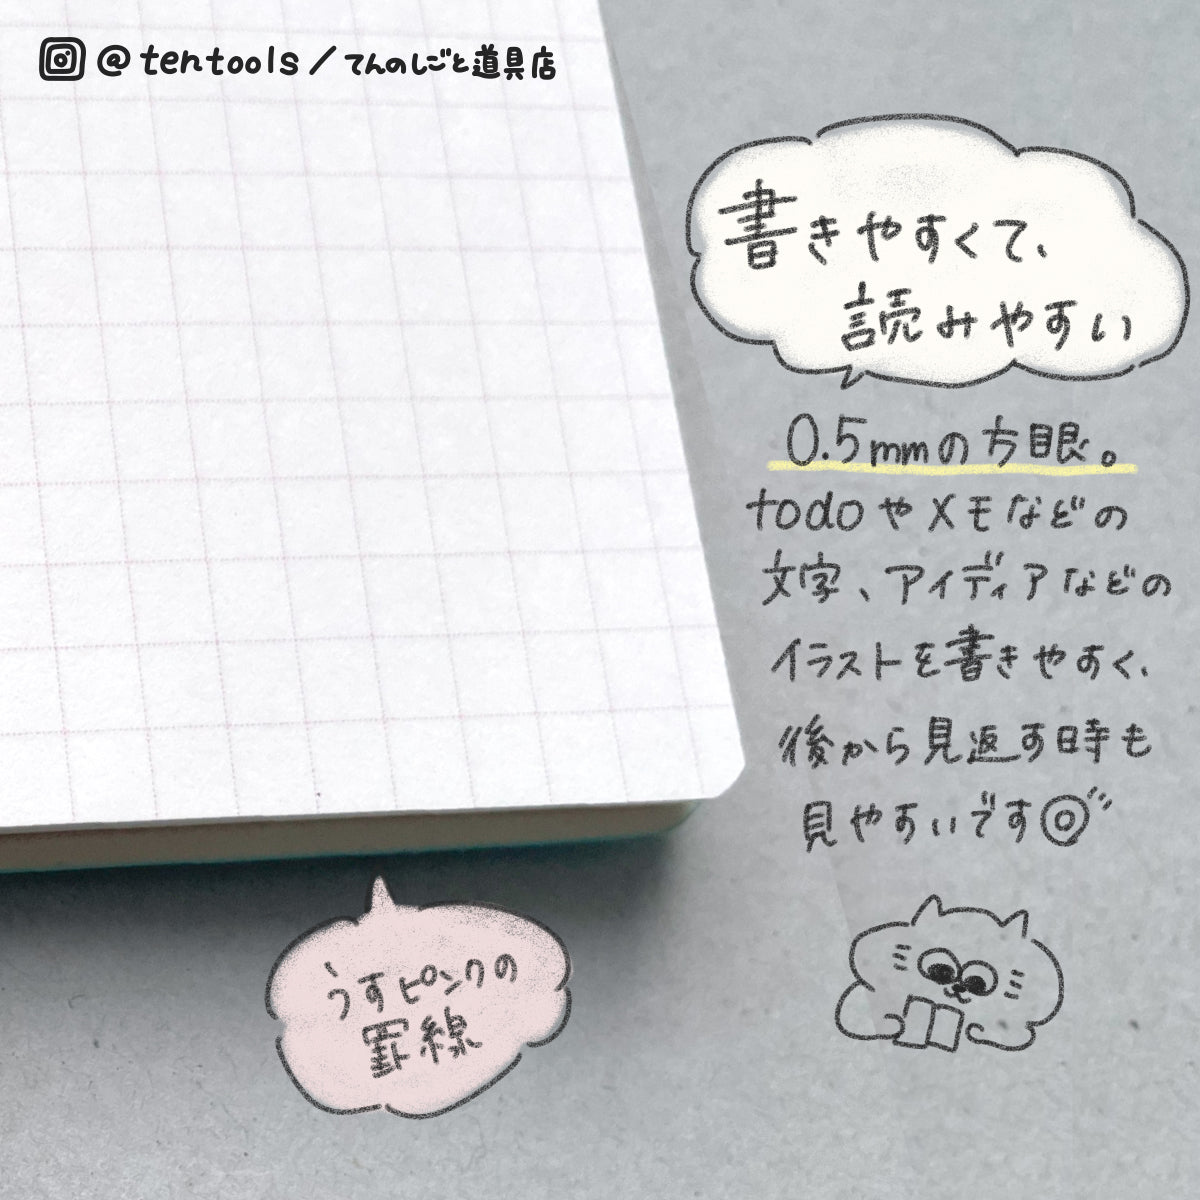 @tentools/てんのしごと道具店
書きやすくて、
読みやすい
0.5mmの方眼。
todoやメモなどの
文字、アイディアなどの
イラストを書きやすく、
後から見返す時も
見やすいです◎
うすピンクの
罫線